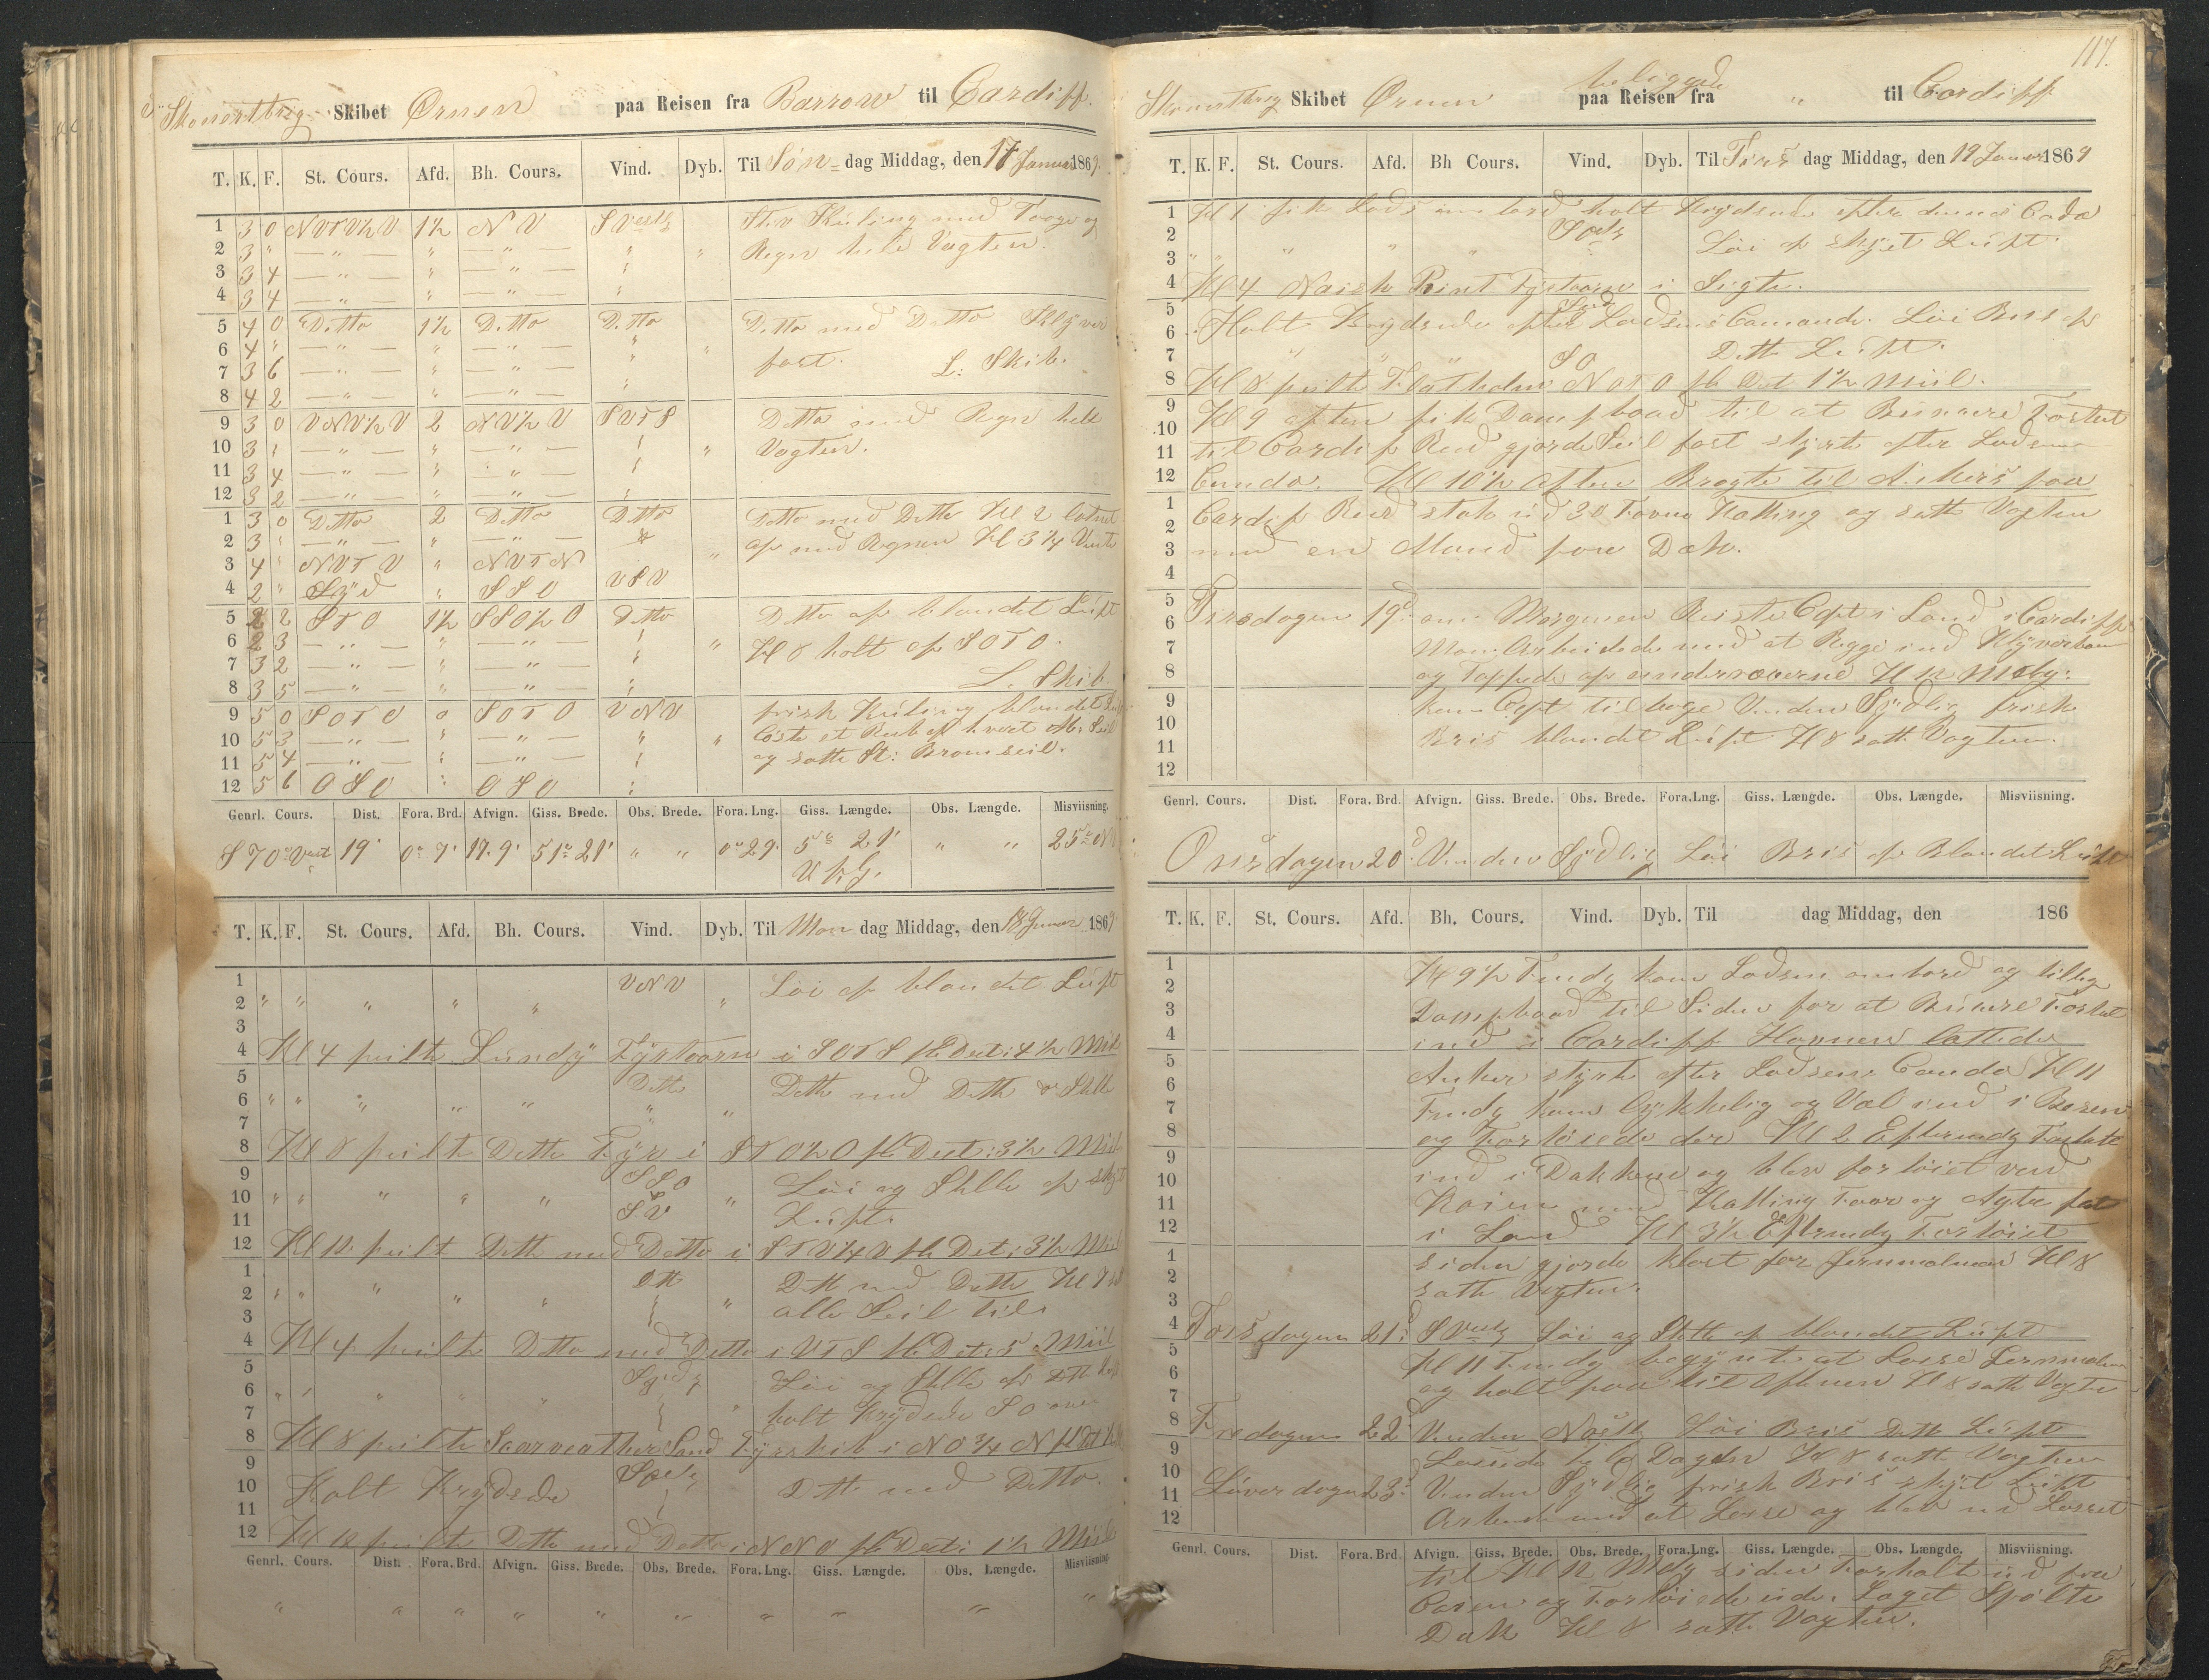 Skonnertbrig Skibet Ørnen paa Reisen fra Barrow til Cardiff.
T. K. F. St. Cours. Afd. Bh. Cours. Vind. Dyb. Til Søn- dag Middag, den 17 Januar 1869
1 3 0 NVTV½V 1½ NV SVestlg Stiv Kuling med Taage og
2 3 " — " — " — " — " " Regn hele Vagten.
3 3 4 — " — " — " — "
4 3 4 — " — " — " — "
5 4 0 Ditto 1½ Ditto Ditto Ditto med Ditto Klyver
6 4 " — " — " — " — " " fast. L: Skib.
7 3 6 — " — " — " — "
8 4 2 — " — " — " — "
9 3 0 VNV½V 2 NV½V SVTS Ditto med Regn hele
10 3 " — " — " — " — " " Vagten.
11 3 4 — " — " — " — "
12 3 2 — " — " — " — "
1 3 0 Ditto 2 Ditto Ditto Ditto med Ditto Kl 2
2 3 " — " — " — " — " af med Regnen Kl 3¼ Vente
3 4 " NVTV " NVTN "
4 2 " Syd " SSO VSV
5 2 2 STO 1½ SSO½O Ditto Ditto af blandet Luft
6 2 3 — " — " — " — " " Kl 8 holt af SOTO.
7 3 2 — " — " — " — "
8 3 5 — " — " — " — " L. Skib.
9 5 0 SOTO 0 SOTO VNV frisk Kuling blandet Luft
10 5 3 — " — " — " — " " Löste et Reb af hvert Mr. Seil
11 5 4 — " — " — " — " og satte St: Bramseil.
12 5 6 OSO " OSO "
Genrl. Cours. Dist. Fora. Brd. Afvign. Giss. Brede. Obs. Brede. Fora. Lng. Giss. Længde. Obs. Længde. Misviisning.
S 70° Vest 19' 0° 7' 17.9' 51° 21' " " 0° 29' 5° 21' " " 25°
V f. G.
T. K. F. St. Cours. Afd. Bh. Cours. Vind. Dyb. Til Man dag Middag, den 18 Januar 1869
1 VNV Löi af blandet Luft
2 " " " " " "
3
4 Kl 4 peilte Lundy Fyrtaarn i SOTS pr Dist: 4½ Miil
5 Ditto Ditto med Ditto og Stille
6 " " " " " " "
7
8 Kl 8 peilte Ditto Fyr i STO½O pr Dist: 3½ Miil
9 SSO Löi og Stille af skyet
10 " " " " " SV " Luft.
11
12 Kl 12 peilt Ditto med Ditto i STV¼V pr Dist: 3½ Miil
1 Ditto Ditto med Ditto Kl
2 " " " " " " alle Seil til.
3
4 Kl 4 peilte Ditto med Ditto i VTS pr Dist: 5 Miil
5 Sydlg Löi og Stille af Ditto Luft
6 " " " " " " holt krydsende SO over
7
8 Kl 8 peilte Scarweather Sand Fyrskib i NO¾N pr Dist
9 Sydlg
10 Holt Krydsende Ditto med Ditto.
11
12 Kl 12 peilte Ditto med Ditto i NNO pr Dist: 1½ Miil
Genrl. Cours. Dist. Fora. Brd. Afvign. Giss. Brede. Obs. Brede. Fora. Lng. Giss. Længde. Obs. Længde. Misviisning.
" " " " " " " " " "
117.
Skonnertbrig Skibet Ørnen beliggende paa Reisen fra " til Cardiff
T. K. F. St. Cours. Afd. Bh Cours. Vind. Dyb. Til Tirs dag Middag, den 19 Januar 1869
1 Kl 1 fik Lods ombord holt krydsende efter dennes Cado
2 " " " SOstlg Löi af skyet Luft.
3 " "
4 Kl 4 Naish Point Fyrtaarn i Sigte.
5
6 Holt Krydsende efter Lodsens Comando. Löi Bris af
7 " " " SO Ditto Luft.
8 Kl 8 peilte Flatholm NOTO pr Dist 1½ Miil.
9 Kl 9 aften fik Dampbaad til at Buxere Fartøiet
10 til Cardif Red gjorde Seil fast styrte efter Lodsens
11 Comdo. Kl 10½ aften Bragte til Ankers paa
12 Cardif Red stak ud 30 Favne Kætting og satte Vagten
1 med en Mand paa Dæk.
2
3
4
5 Tirsdagen 19d: om Morgenen Reiste Capt i Land i Cardiff
6 Man. Arbeidede med at Rigge ind Klyverbom
7 og Toppede af underraaerne Kl 12 Mdg:
8 kom Capt tilbage Vinden Sydlig frisk
9 Bris blandet Luft Kl 8 satte Vagten.
10
11
12
Genrl. Cours. Dist. Fora. Brd. Afvign. Giss. Brede. Obs. Brede. Fora.Lng. Giss. Længde. Obs. Længde. Misviisning.
Onsdagen 20d: Vinden Sydlig Löi Bris af Blandet Luft
T. K. F. St. Cours. Afd. Bh. Cours. Vind. Dyb. Til dag Middag, den 186
1 Kl 9½ Fmdg kom Lodsen ombord og tillige
2 Dampbaad til Siden for at Buxere Fartøiet
3 ind i Cardiff Havnen lættede
4 Anker styrte efter Lodsens Comdo Kl 11
5 Fmdg kom lykkelig og Vel ind i Basen
6 og Fortöiede der Kl 2 Eftermdg Forhalte
7 ind i Dokken og blev fortöiet ved
8 Kaien med Kætting Foor og Agter fast
9 i Land Kl 3½ Eftrmdg Fortöiet
10 siden gjorde klart for Jernmalmen Kl 8
11 satte Vagten.
12
1
2
3
4 Torsdagen 21d: SVestlg Löi og Stille af blandet Luft
5 Kl 11 Fmdg begynte at Losse Jernmalmen
6 og holt paa til Aftenen Kl 8 satte Vagten
7
8 Fredagen 22d: Vinden NOstlg Löi Bris Ditto Luft
9 Lossede hele Dagen Kl 8 satte Vagten
10 Löverdagen 23d: Vinden Sydlig frisk Bris skyet Luft
11 Arbeidede med at Losse og blev ud Losset
12
Genrl. Cours. Dist. Fora. Brd. Afvign. Giss. Brede. Obs. Brede. Fora.Lng. Giss. Længde. Obs. Længde. Misviisning.
til Kl 12 Mdg siden Forhalte ud fra
Caien og Fortöiede udi. Laget Spölte
Dæk Kl 8 satte Vagten.